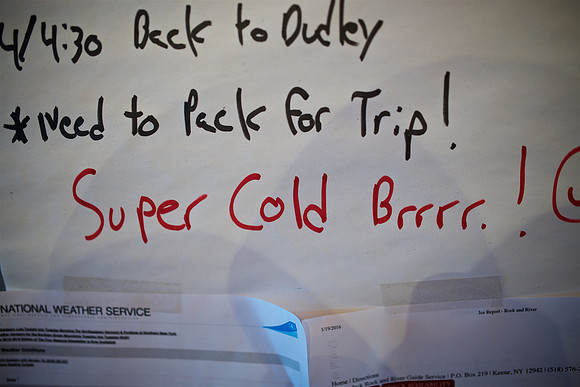 4/4:30 Back to Dudley
*Need to Pack for Trip!
Super Cold Brrrr.!
NATIONAL WEATHER SERVICE
Ice Report - Rock and River
1/19/2016
Home | Directions
Rock and River Guide Service | P.O. Box 219 | Keene, NY 12942 | (518) 576-